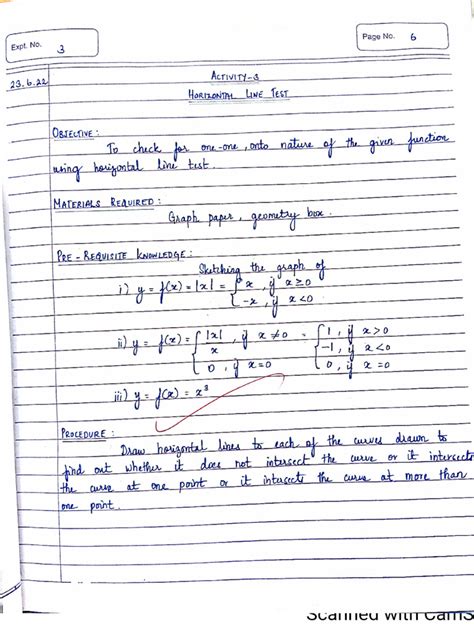 Expt. No. 3
Page No. 6
23.6.22
ACTIVITY-3
HORIZONTAL LINE TEST
OBJECTIVE :
To check for one-one, onto nature of the given function
using horizontal line test.
MATERIALS REQUIRED :
Graph paper, geometry box.
PRE-REQUISITE KNOWLEDGE :
Sketching the graph of
i) y = f(x) = |x| = { x , if x ≥ 0
{ -x , if x < 0.
ii) y = f(x) = { |x|/x , if x ≠ 0 = { 1 , if x > 0
{ -1 , if x < 0
{ 0 , if x = 0 { 0 , if x = 0
iii) y = f(x) = x³
PROCEDURE :
Draw horizontal lines to each of the curves drawn to
find out whether it does not intersect the curve or it intersects
the curve at one point or it intersects the curve at more than
one point.
Scanned with CamS